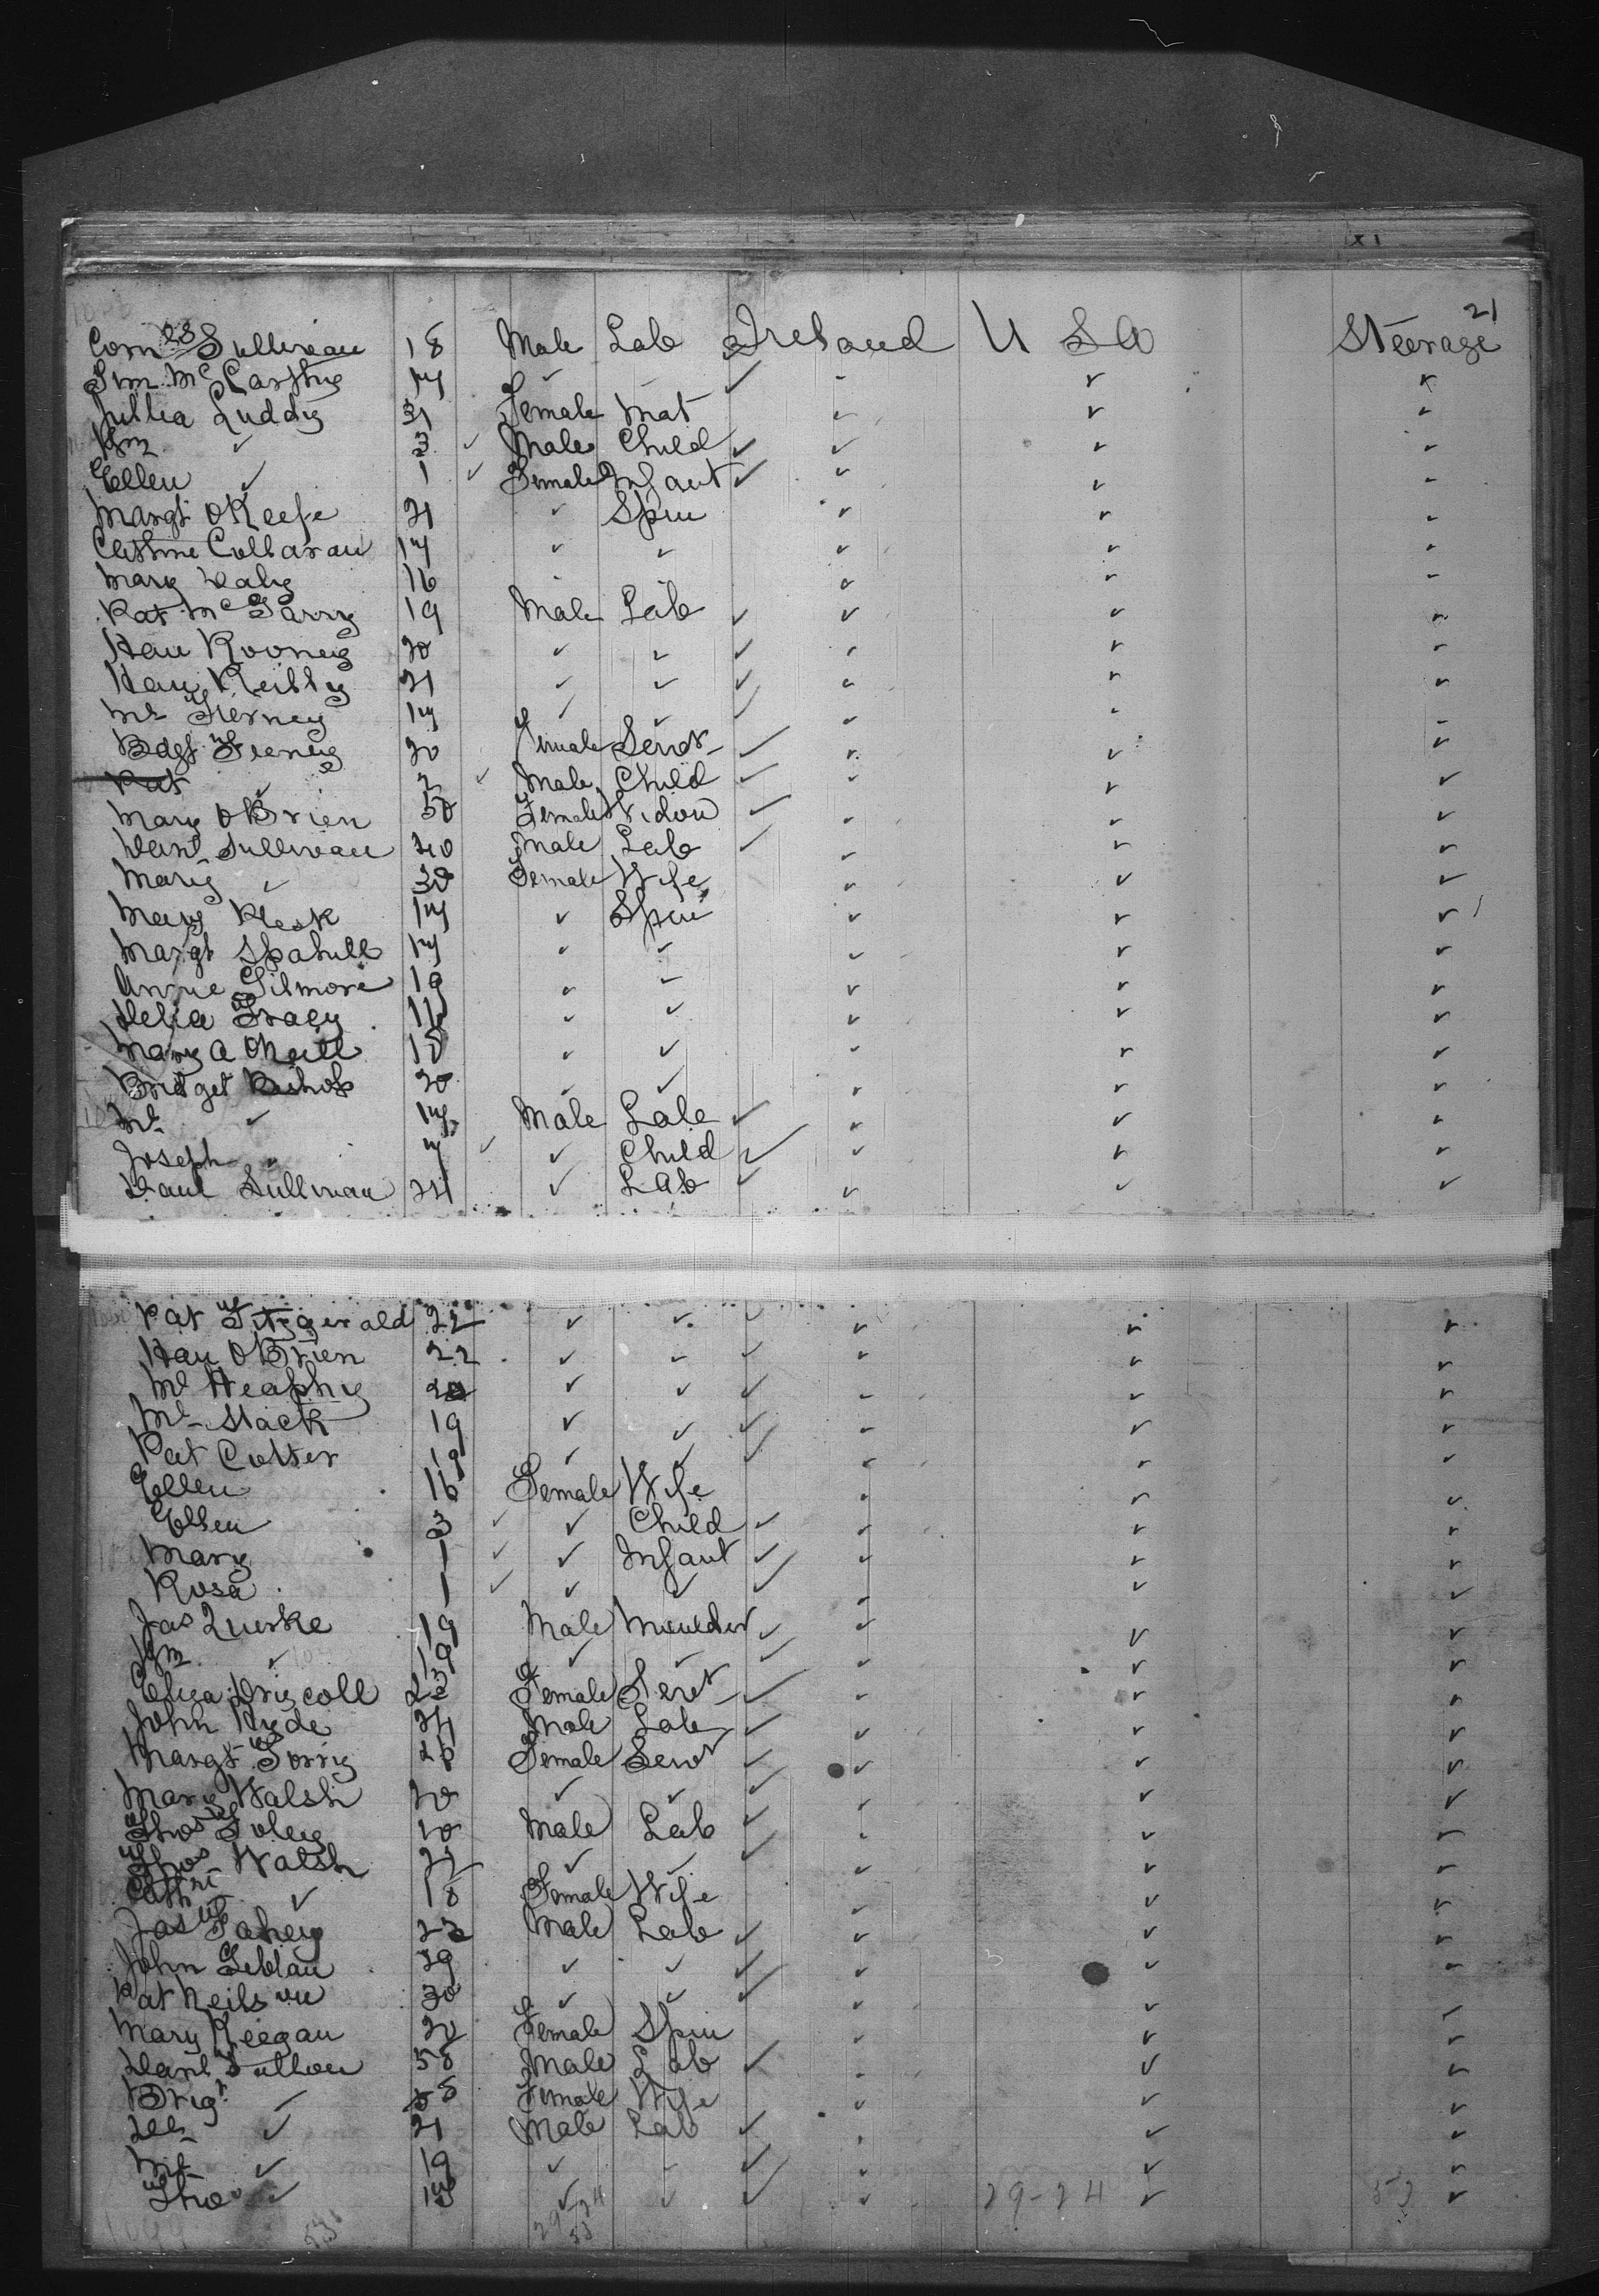 21
Corns Sullivan 18 Male Lab Ireland U S A Steerage
Tim McCarthy 17 ✓ ✓ ✓
Julia Luddy 31 Female Mat ✓ ✓ ✓
Wm ✓ 3 ✓ Male Child ✓ ✓ ✓ ✓
Ellen ✓ 1 ✓ Female Infant ✓ ✓ ✓
Margt OKeefe 21 ✓ Spin ✓ ✓ ✓
Cathrine Collaran 17 ✓ ✓ ✓ ✓ ✓
Mary Daly 16 ✓ ✓
Pat McGarry 19 Male Lab ✓ ✓ ✓ ✓
Han Rooney 20 ✓ ✓ ✓ ✓ ✓ ✓
Han Reilly 21 ✓ ✓ ✓ ✓ ✓ ✓
Ml Tierney 17 ✓ ✓ ✓ ✓
Bdgt Feeney 20 Female Servt ✓ ✓ ✓
Pat ✓ 2 ✓ Male Child ✓ ✓ ✓
Mary OBrien 50 Female Widow ✓ ✓ ✓
Danl Sullivan 40 Male Lab ✓ ✓ ✓ ✓
Mary ✓ 30 Female Wife ✓ ✓ ✓
Mary 17 ✓ Spin ✓ ✓ ✓
Margt 17 ✓ ✓ ✓ ✓ ✓
Annie Gilmore 19 ✓ ✓ ✓ ✓ ✓
Delia Tracy 16 ✓ ✓ ✓ ✓ ✓
Mary A ONeill 18 ✓ ✓ ✓ ✓ ✓
Bridget Bishop 20 ✓ ✓ ✓ ✓ ✓
Ml ✓ 17 Male Lab ✓ ✓ ✓ ✓
Joseph ✓ 7 ✓ ✓ Child ✓ ✓ ✓ ✓
Danl Sullivan 24 ✓ Lab ✓ ✓ ✓ ✓
Pat Fitzgerald 22 ✓ ✓ ✓ ✓ ✓ ✓
Han OBrien 22 ✓ ✓ ✓ ✓ ✓ ✓
Ml Heaphy 20 ✓ ✓ ✓ ✓ ✓ ✓
Ml Stack 19 ✓ ✓ ✓ ✓ ✓ ✓
Pat Cotter 19 ✓ ✓ ✓ ✓ ✓ ✓
Ellen 16 Female Wife ✓ ✓ ✓
Ellen 3 ✓ ✓ Child ✓ ✓ ✓ ✓
Mary 1 ✓ ✓ Infant ✓ ✓ ✓ ✓
Rosa 1 ✓ ✓ ✓ ✓ ✓ ✓ ✓
Jas Quirke 19 Male Moulder ✓ ✓ ✓ ✓
Wm ✓ 19 ✓ ✓ ✓ ✓ ✓ ✓
Eliza Driscoll 23 Female Servt ✓ ✓ ✓ ✓
John Hyde 24 Male Lab ✓ ✓ ✓ ✓
Margt Torry 20 Female Servt ✓ ✓ ✓ ✓
Mary Walsh 20 ✓ ✓ ✓ ✓ ✓ ✓
Thos Foley 20 Male Lab ✓ ✓ ✓ ✓
Thos Walsh 22 ✓ ✓ ✓ ✓ ✓ ✓
Cathne ✓ 18 Female Wife ✓ ✓ ✓
Jas Fahey 22 Male Lab ✓ ✓ ✓ ✓
John Geblan 29 ✓ ✓ ✓ ✓ ✓ ✓
Pat Neilson 30 ✓ ✓ ✓ ✓ ✓ ✓
Mary Keegan 20 Female Spin ✓ ✓ ✓
Danl Fallon 58 Male Lab ✓ ✓ ✓ ✓
Brigt ✓ 58 Female Wife ✓ ✓ ✓
✓ 21 Male Lab ✓ ✓ ✓ ✓
Ml ✓ 19 ✓ ✓ ✓ ✓ ✓ ✓
Thos ✓ 17 ✓ ✓ ✓ ✓ ✓ ✓
29-24 53
29-24
53